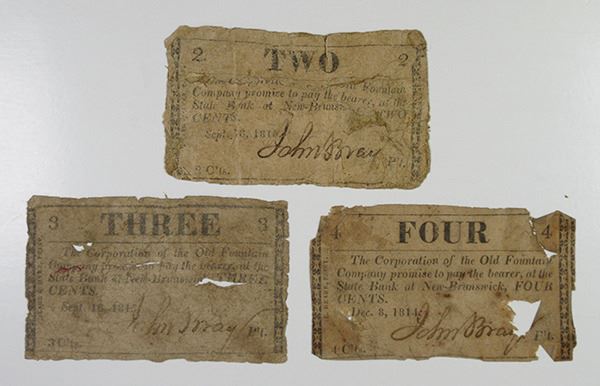 2 TWO 2
Fountain
Company promise to pay the bearer, at the
State Bank at New-Brunswick, TWO
CENTS.
Sept. 1814
John Bray P't.
2 C'ts.
3 THREE 3
The Corporation of the Old Fountain
Company promise to pay the bearer, at the
State Bank at New-Brunswick, THREE
CENTS.
Sept. 16, 181
John Bray P't.
3 C'ts.
4 FOUR 4
The Corporation of the Old Fountain
Company promise to pay the bearer, at the
State Bank at New-Brunswick, FOUR
CENTS.
Dec. 8, 1814.
John Bray P't.
4 C'ts.